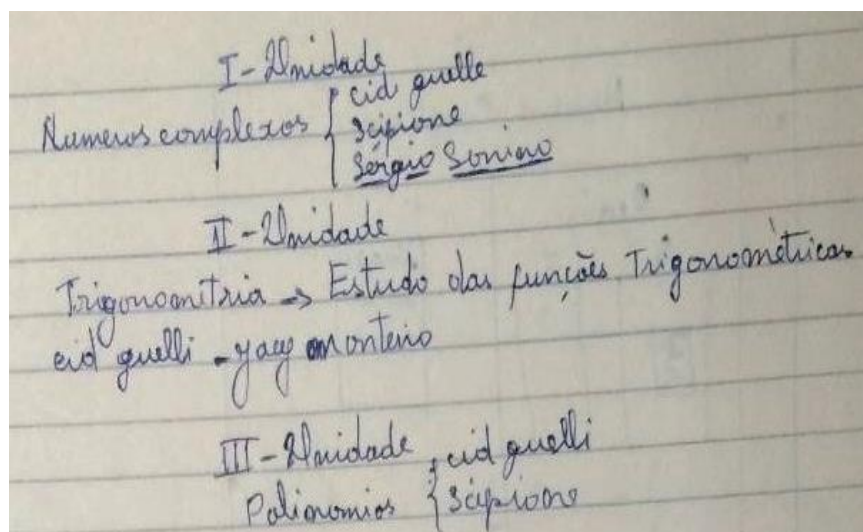 I - Unidade
Numeros complexos { cid guelle
scipione
Sérgio Sonino
II - Unidade
Trigonometria → Estudo das funções Trigonométricas
cid guelli - Jacy Monteiro
III - Unidade
Polinomios { cid guelli
scipione